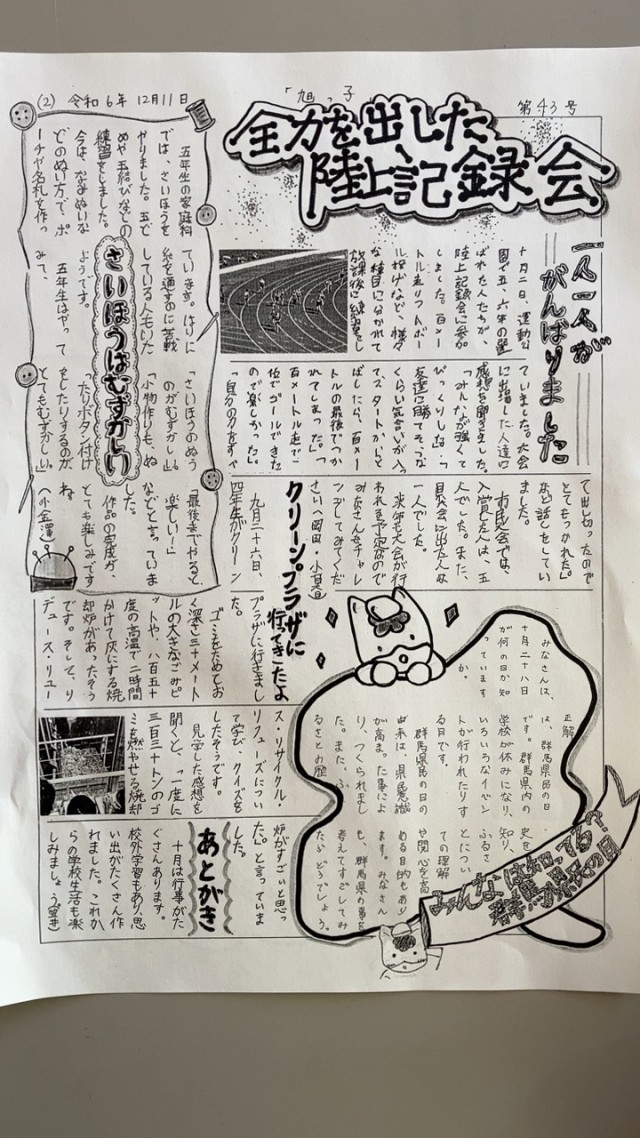 (2) 令和6年 12月11日
「旭っ子
第43号
全力を出した
陸上記録会
一人一人が
がんばりました
十月二日、運動公
園で五、六年の選
ばれた人たちが、
陸上記録会に参加
しました。百メー
トル走りソフトボー
ル投げなど、様々
な種目に分かれて
放課後に練習をし
ていました。大会
に出場した人達に
感想を聞きました。
「みんなが強くて
びっくりした。」「
友達に勝てそうな
くらい気合いが入っ
て、スタートからと
ばしたら、百メー
トルの最後でつか
れてしまった。」「
百メートル走で二
位でゴールできた
ので楽しかった。」
「自分の力をすべ
て出し切ったので
とてもつかれた。」
など話をしてい
ました。
市民会では、
入賞した人は、五
人でした。また、
県大会に出た人は
一人でした。
来年も大会が行
われる予定なので
みなさんもチャレ
ンジしてみてくだ
さい。(岡田・小暮)
クリーンプラザに
行ってきたよ
九月二十六日、
四年生がクリーン
プラザに行きまし
た。
ゴミをためてお
く深さ三十メート
ルの大きなごみピ
ットや、八百五十
度の高温で二時間
かけて灰にする焼
却炉があったそう
です。そして、リ
デュース・リユー
ス・リサイクル・
リフューズについ
て学び、クイズを
したそうです。
見学した感想を
聞くと、「一度に
三百三十トンのゴ
ミを燃やせる焼却
炉がすごいと思っ
た。」と言っていま
した。
あとがき
十月は行事がた
くさんあります。
校外学習もあり、思
い出がたくさん作
れました。これか
らの学校生活も楽
しみましょう。
さいほうはむずかしい
五年生の家庭科
では、さいほうを
やりました。玉ど
めや玉結びなどの
練習をしました。
今は、なみぬいな
どのぬい方で、ポ
ーチや名札を作っ
ています。はりに
糸を通すのに苦戦
している人もいた
ようです。
五年生はやって
みて、
「さいほうのぬう
のがむずかしい。」
「小物作りも、ぬ
ったりボタン付け
をしたりするのが、
とてもむずかしい。」
「最後までやると
楽しい!」
などと言っていま
した。
作品の完成が、
とても楽しみです
ね。
(小金澤)
みんなは知ってる?
群馬県民の日
みなさんは、
十月二十八日
が何の日か知
っています
か。
正解
は、群馬県民の日
です。群馬県内の
学校が休みになり、
いろいろなイベン
トが行われたりす
る日です。
群馬県民の日の
由来は、県民意識
が高まった事によ
り、つくられまし
た。また、ふ
るさとの歴
史を
知り、
ふるさ
とについ
ての理解
や関心を高
める目的もあり
ます。みなさん
も、群馬県の事を
考えてすごしてみ
たらどうでしょう。